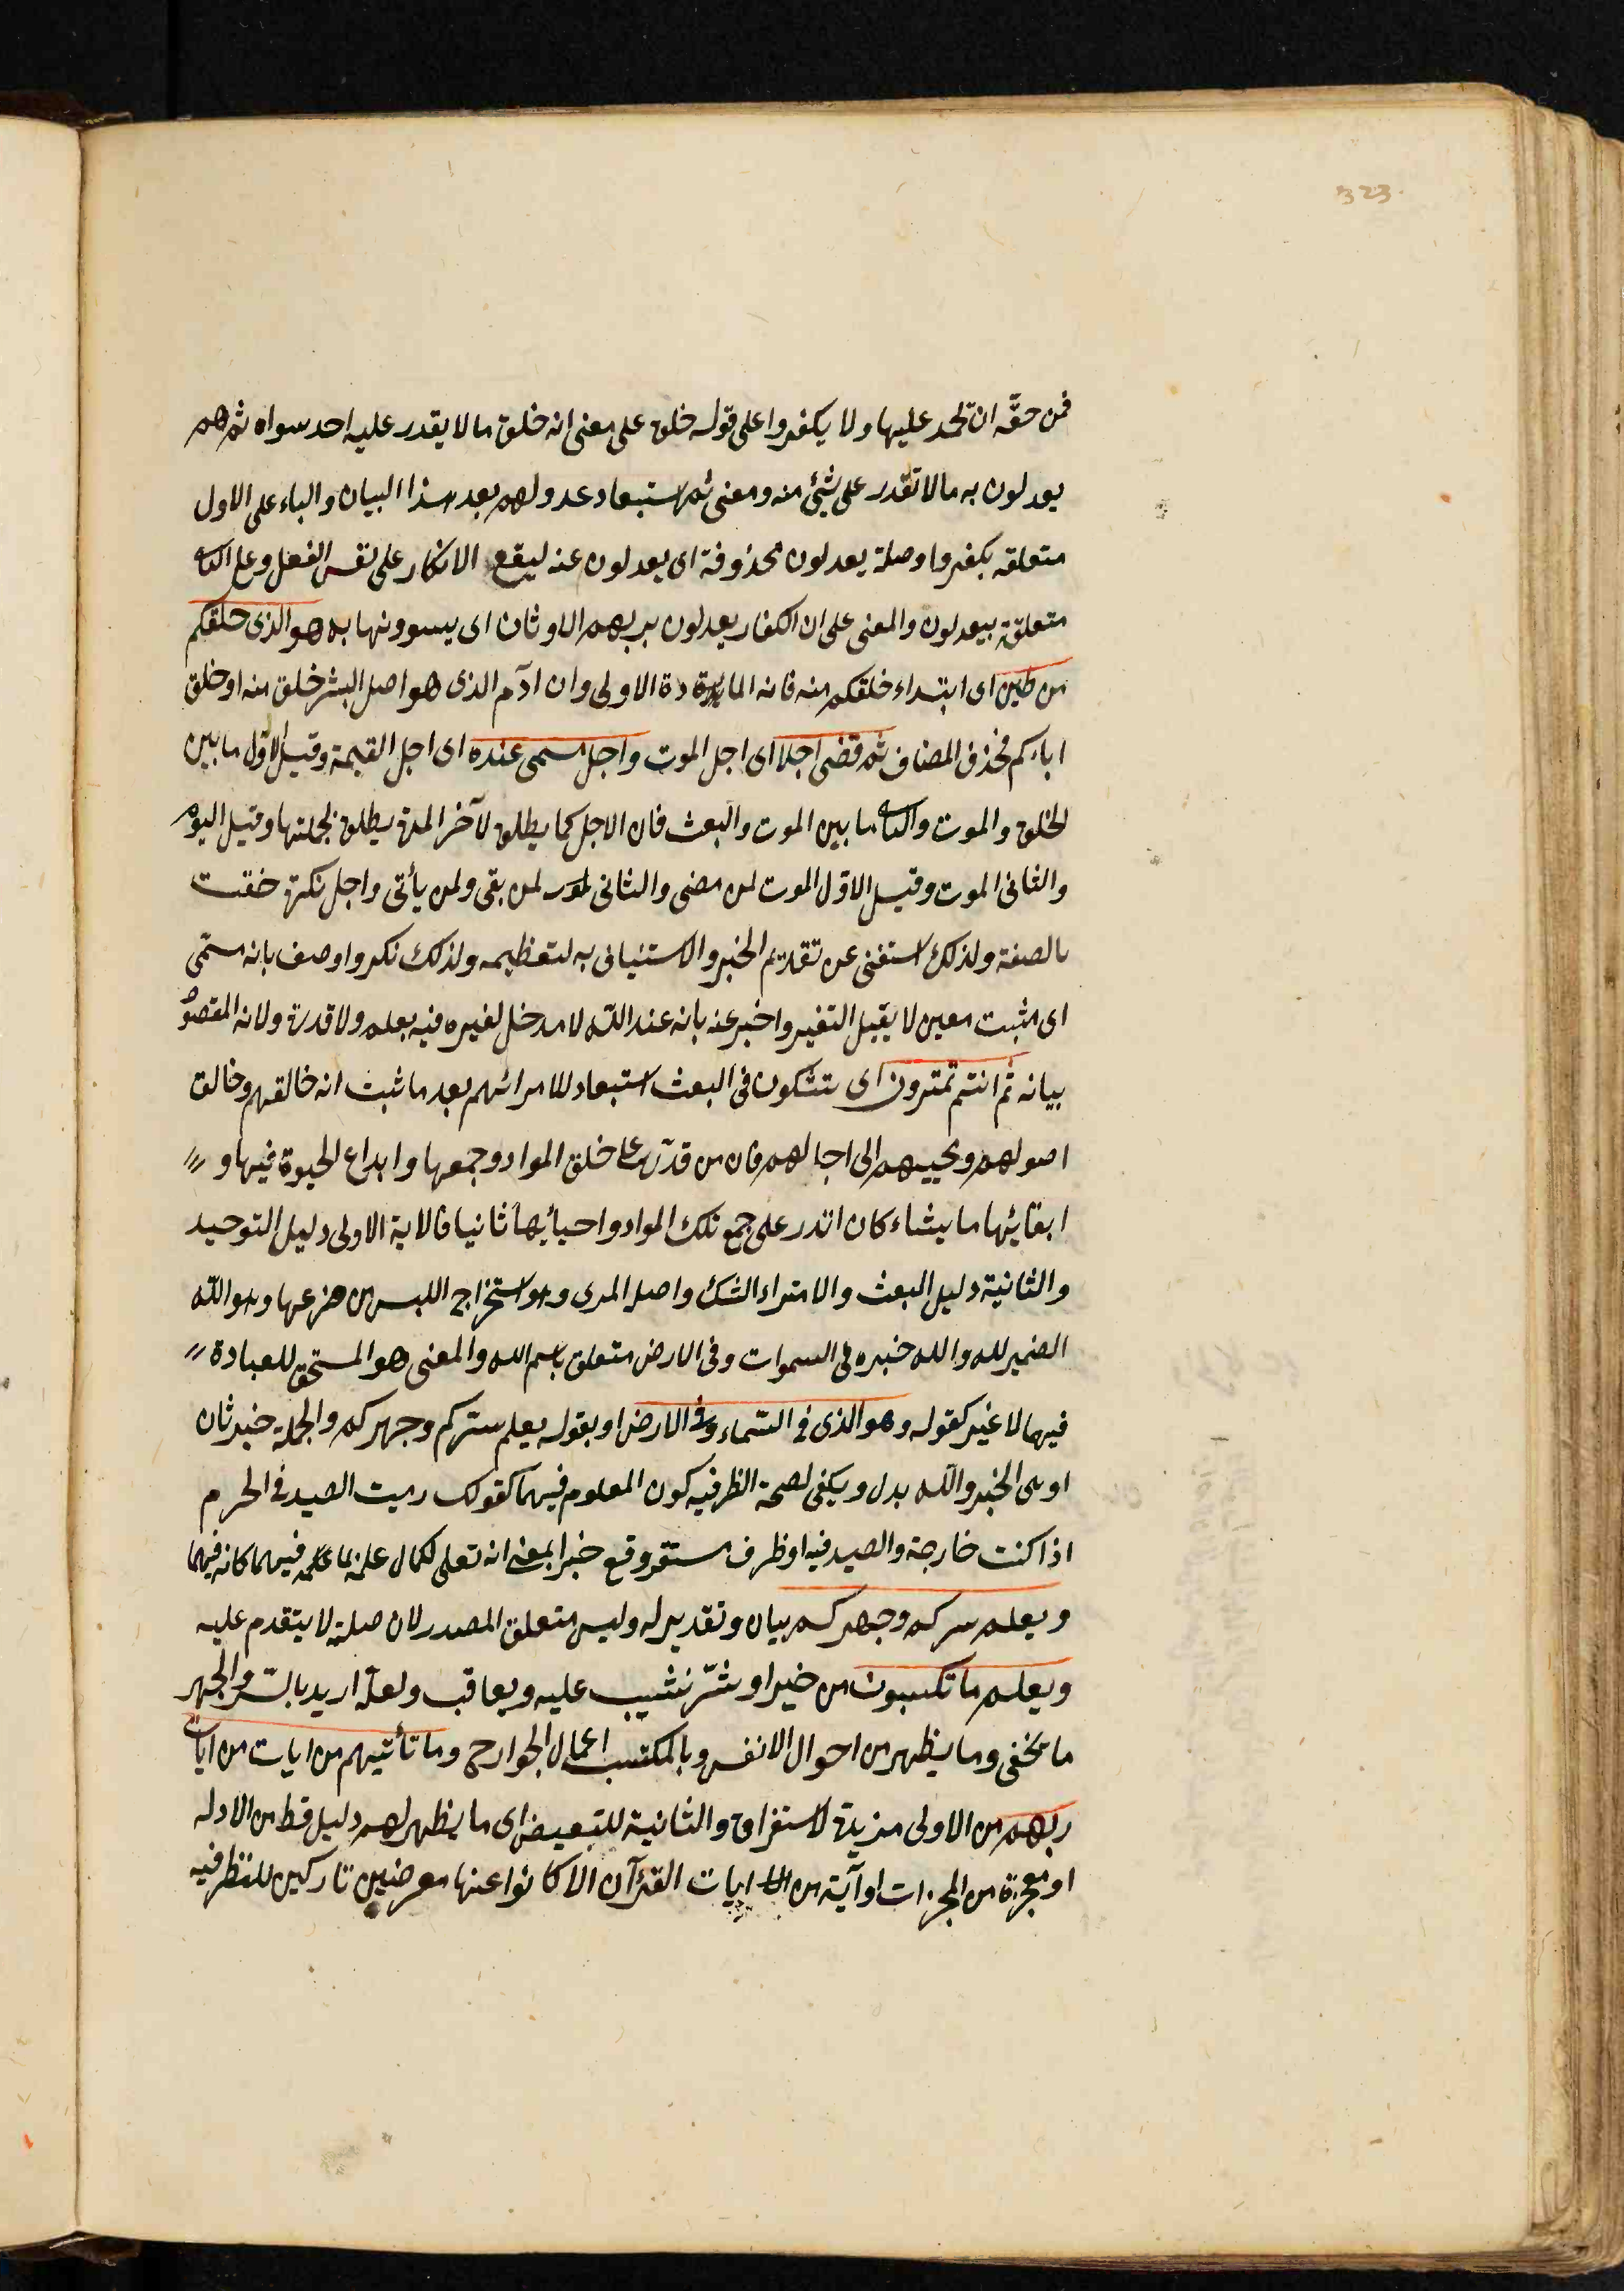 323
فمن حقّه ان تحمد عليها ولا يكفروا على قوله خلق على معنى انه خلق ما لا يقدر عليه احد سواه ثم هم
يعدلون به ما لا تقدر على شئ منه ومعنى ثم استبعاد عدولهم بعد هذا البيان والباء على الاول
متعلقه بكفروا وصلة يعدلون محذوفة اى يعدلون عنه ليقع الانكار على نفس الفعل وعلى الثانى
متعلقة بيعدلون والمعنى على ان الكفار يعدلون بربهم الاوثان اى يسوونها به هو الذى خلقكم
من طين اى ابتداء خلقكم منه فانه المادة الاولى وان ادآم الذى هو اصل البشر خلق منه او خلق
اباءكم فحذف المضاف ثم قضى اجلا اى اجل الموت واجل مسمى عنده اى اجل القيمة وقيل الاول ما بين
الخلق والموت والثانى ما بين الموت والبعث فان الاجل كما يطلق لآخر المدة يطلق لجملتها وقيل اليوم
والثانى الموت وقيل الاوّل الموت لمن مضى والثانى لمن بقى ولمن يأتى واجل نكرة خفت
بالصفة ولذلك استغنى عن تقديم الخبر والاستئيانى به لتعظيمه ولذلك نكر واوصف بانه مسمّى
اى مثبت معين لا يقبل التغير واخبر عنه بانه عند الله لا مدخل لغيره فيه بعلم ولا قدرة ولانه المقصود
بيانه ثم انتم تمترون اى تشكون فى البعث استبعاد للامرائهم بعد ما ثبت انه خالقهم وخالق
اصولهم ومحييهم الى اجالهم فان من قدر على خلق المواد وجمعها وابداع الحيوة فيها و
ابقائها ما يشاء كان اقدر على جمع تلك المواد واحيائها ثانيا فالاية الاولى دليل التوحيد
والثانية دليل البعث والامتراء الشك واصله المرى وهو استخراج اللبس من ضرعها وهو الله
الضمير لله والله خبره فى السموات وفى الارض متعلق باسم الله والمعنى هو المستحق للعبادة
فيهما لا غير كقوله وهو الذى فى السّماء وفى الارض او بقوله يعلم سرّكم وجهركم والجملة خبر ثان
او هى الخبر والله بدل ويكفى لصحة الظرفيه كون المعلوم فيهما كقولك رميت الصيد فى الحرم
اذا كنت خارجة والصيد فيه او ظرف مستقر وقع خبرا بمعنى انه تعلى لكمال علمه بما فيهما كانه فيهما
ويعلم سركم وجهركم بيان وتقدير له وليس متعلق المصدر لان صلته لا يتقدم عليه
ويعلم ما تكسبون من خير او شرّ نثيب عليه ويعاقب ولعلّه اريد بالسّر والجهر
ما يخفى وما يظهر من احوال الانفس وبالمكتسب اعمال الجوارح وما تأتيهم من ايات من ايات
ربهم من الاولى مزيدة لاستغراق والثانية للتبعيض اى ما يظهر لهم دليل قط من الادله
او معجزة من المجزات او آية من ايات القرآن الا كانوا عنها معرضين تاركين للنظر فيه